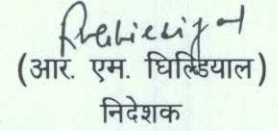 (आर. एम. घिल्डियाल)
निदेशक